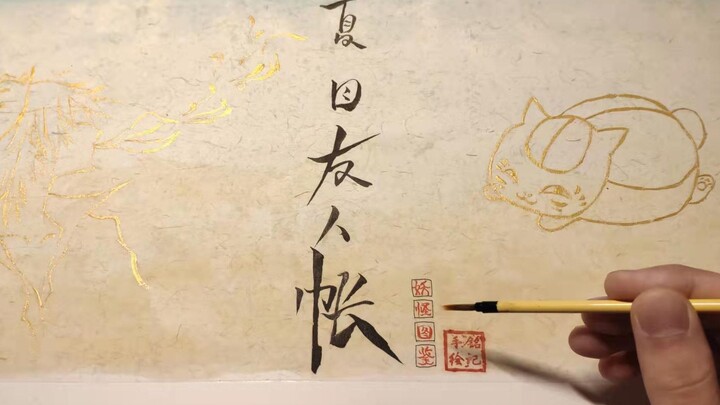 夏目友人帐
妖怪图鉴
手绘
铭记